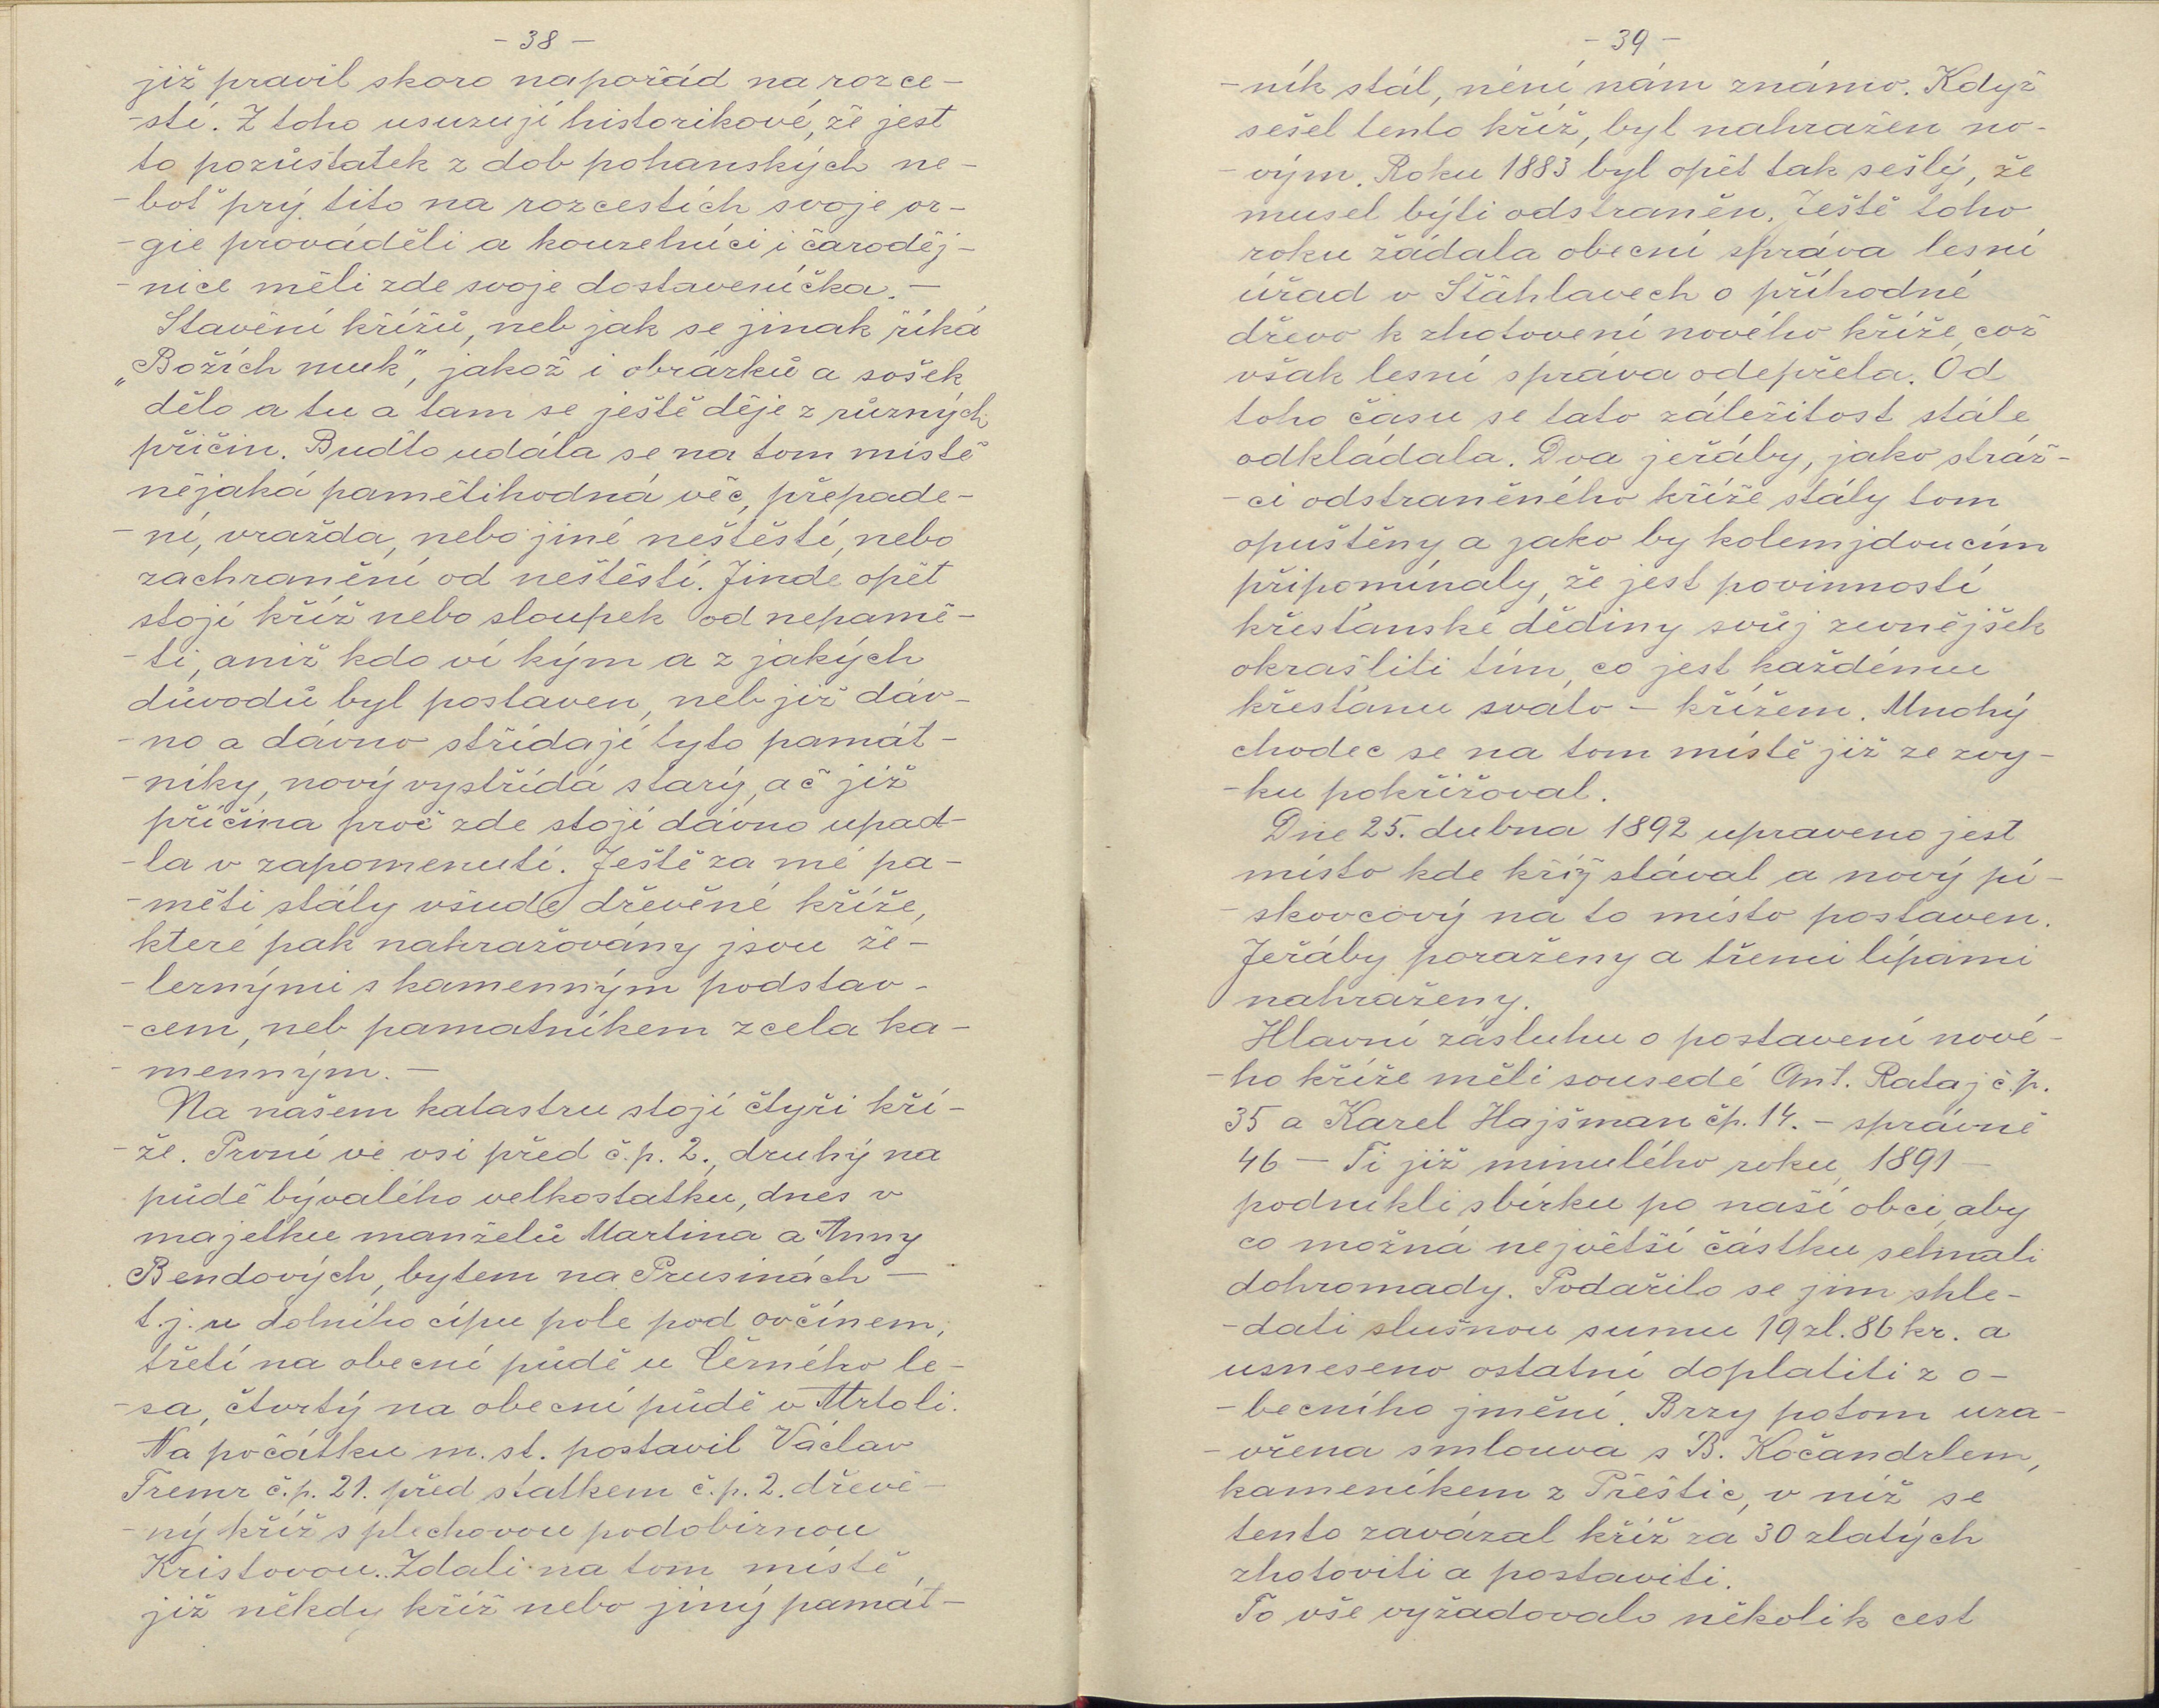 - 38 -
již pravil skoro napořád na rozce-
-stí. Z toho usuzují historikové, že jest
to pozůstatek z dob pohanských ne-
-boť prý tito na rozcestích svoje or-
-gie prováděli a kouzelníci i čaroděj-
-nice měli zde svoje dostaveníčka. -
Stavění křížů, neb jak se jinak říká
„Božích muk", jakož i obrázků a sošek
dělo a tu a tam se ještě děje z různých
příčin. Buďto udála se na tom místě
nějaká pamětihodná věc, přepade-
-ní, vražda, nebo jiné neštěstí, nebo
zachranění od neštěstí. Jinde opět
stojí kříž nebo sloupek od nepamě-
-ti, aniž kdo ví kým a z jakých
důvodů byl postaven, neb již dáv-
-no a dávno střídají tyto památ-
-níky, nový vystřídá starý, ač již
příčina proč zde stojí dávno upad-
-la v zapomenutí. Ještě za mé pa-
-měti stály všude dřevěné kříže,
které pak nahražovány jsou že-
-leznými s kamenným podstav-
-cem, neb pamatníkem zcela ka-
-menným. -
Na našem katastru stojí čtyři kří-
-že. První ve vsi před č.p. 2., druhý na
půdě bývalého velkostatku, dnes v
majetku manželů Martina a Anny
Bendových, bytem na Prusinách -
t.j. u dolního cípu pole pod ovčínem,
třetí na obecní půdě u Černého le-
-sa, čtvrtý na obecní půdě v Mrtoli.
Na počátku m. st. postavil Václav
Tremr č.p. 21. před statkem č.p. 2. dřevě-
-ný kříž s plechovou podobiznou
Kristovou. Zdali na tom místě,
již někdy kříž nebo jiný památ-
- 39 -
-ník stál, není nám známo. Když
sešel tento kříž, byl nahražen no-
-vým. Roku 1883 byl opět tak sešlý, že
musel býti odstraněn. Ještě toho
roku žádala obecní správa lesní
úřad v Šťáhlavech o příhodné
dřevo k zhotovení nového kříže, což
však lesní správa odepřela. Od
toho času se tato záležitost stále
odkládala. Dva jeřáby, jako stráž-
-ci odstraněného kříže stály tom
opuštěny a jako by kolemjdoucím
připomínaly, že jest povinností
křesťanské dědiny svůj zevnějšek
okrašliti tím, co jest každému
křesťanu sváto - křížem. Mnohý
chodec se na tom místě již ze zvy-
-ku pokřižoval.
Dne 25. dubna 1892 upraveno jest
místo kde kříž stával a nový pí-
-skovcový na to místo postaven.
Jeřáby poraženy a třemi lípami
nahraženy.
Hlavní zásluhu o postavení nové-
-ho kříže měli sousedé Ant. Rataj č.p.
35 a Karel Hajšman čp. 14. - správně
46 - Ti již minulého roku 1891 -
podnikli sbírku po naší obci, aby
co možná největší částku sehnali
dohromady. Podařilo se jim shle-
-dati slušnou sumu 19 zl. 86 kr. a
usneseno ostatní doplatiti z o-
-becního jmění. Brzy potom uza-
-vřena smlouva s B. Kočandrlem,
kameníkem z Přeštic, v níž se
tento zavázal kříž za 30 zlatých
zhotoviti a postaviti.
To vše vyžadovalo několik cest